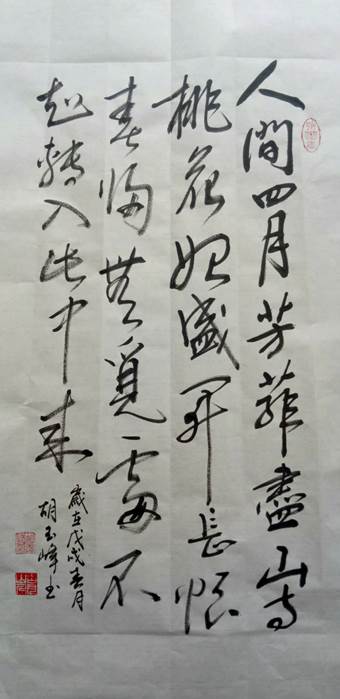 人間四月芳菲盡山寺
桃花始盛开長恨
春歸無覓處不
知轉入此中来
歲在戊戌春月
胡玉峰书